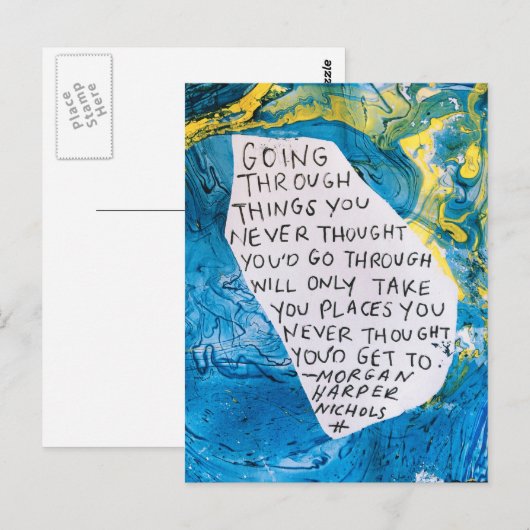 Place
Stamp
Here
zazzle
GOING
THROUGH
THINGS YOU
NEVER THOUGHT
YOU'D GO THROUGH
WILL ONLY TAKE
YOU PLACES YOU
NEVER THOUGHT
YOU'D GET TO.
—MORGAN
HARPER
NICHOLS
#